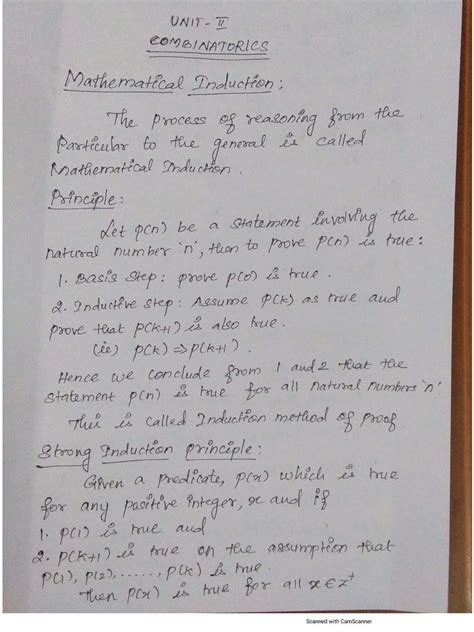 UNIT - II
COMBINATORICS
Mathematical Induction :
The process of reasoning from the
Particular to the general is called
Mathematical Induction .
Principle :
Let p(n) be a statement involving the
natural number 'n', then to prove P(n) is true :
1. Basis Step : prove p(0) is true .
2. Inductive step : Assume P(k) as true and
prove that P(k+1) is also true .
(ie) P(k) ⇒ P(k+1) .
Hence we conclude from 1 and 2 that the
statement p(n) is true for all natural numbers 'n'
This is called Induction method of proof
Strong Induction principle :
Given a predicate, p(x) which is true
for any positive integer, x and if
1. p(1) is true and
2. P(k+1) is true on the assumption that
P(1), P(2), ....., P(k) is true .
Then p(x) is true for all x ∈ z⁺
Scanned with CamScanner